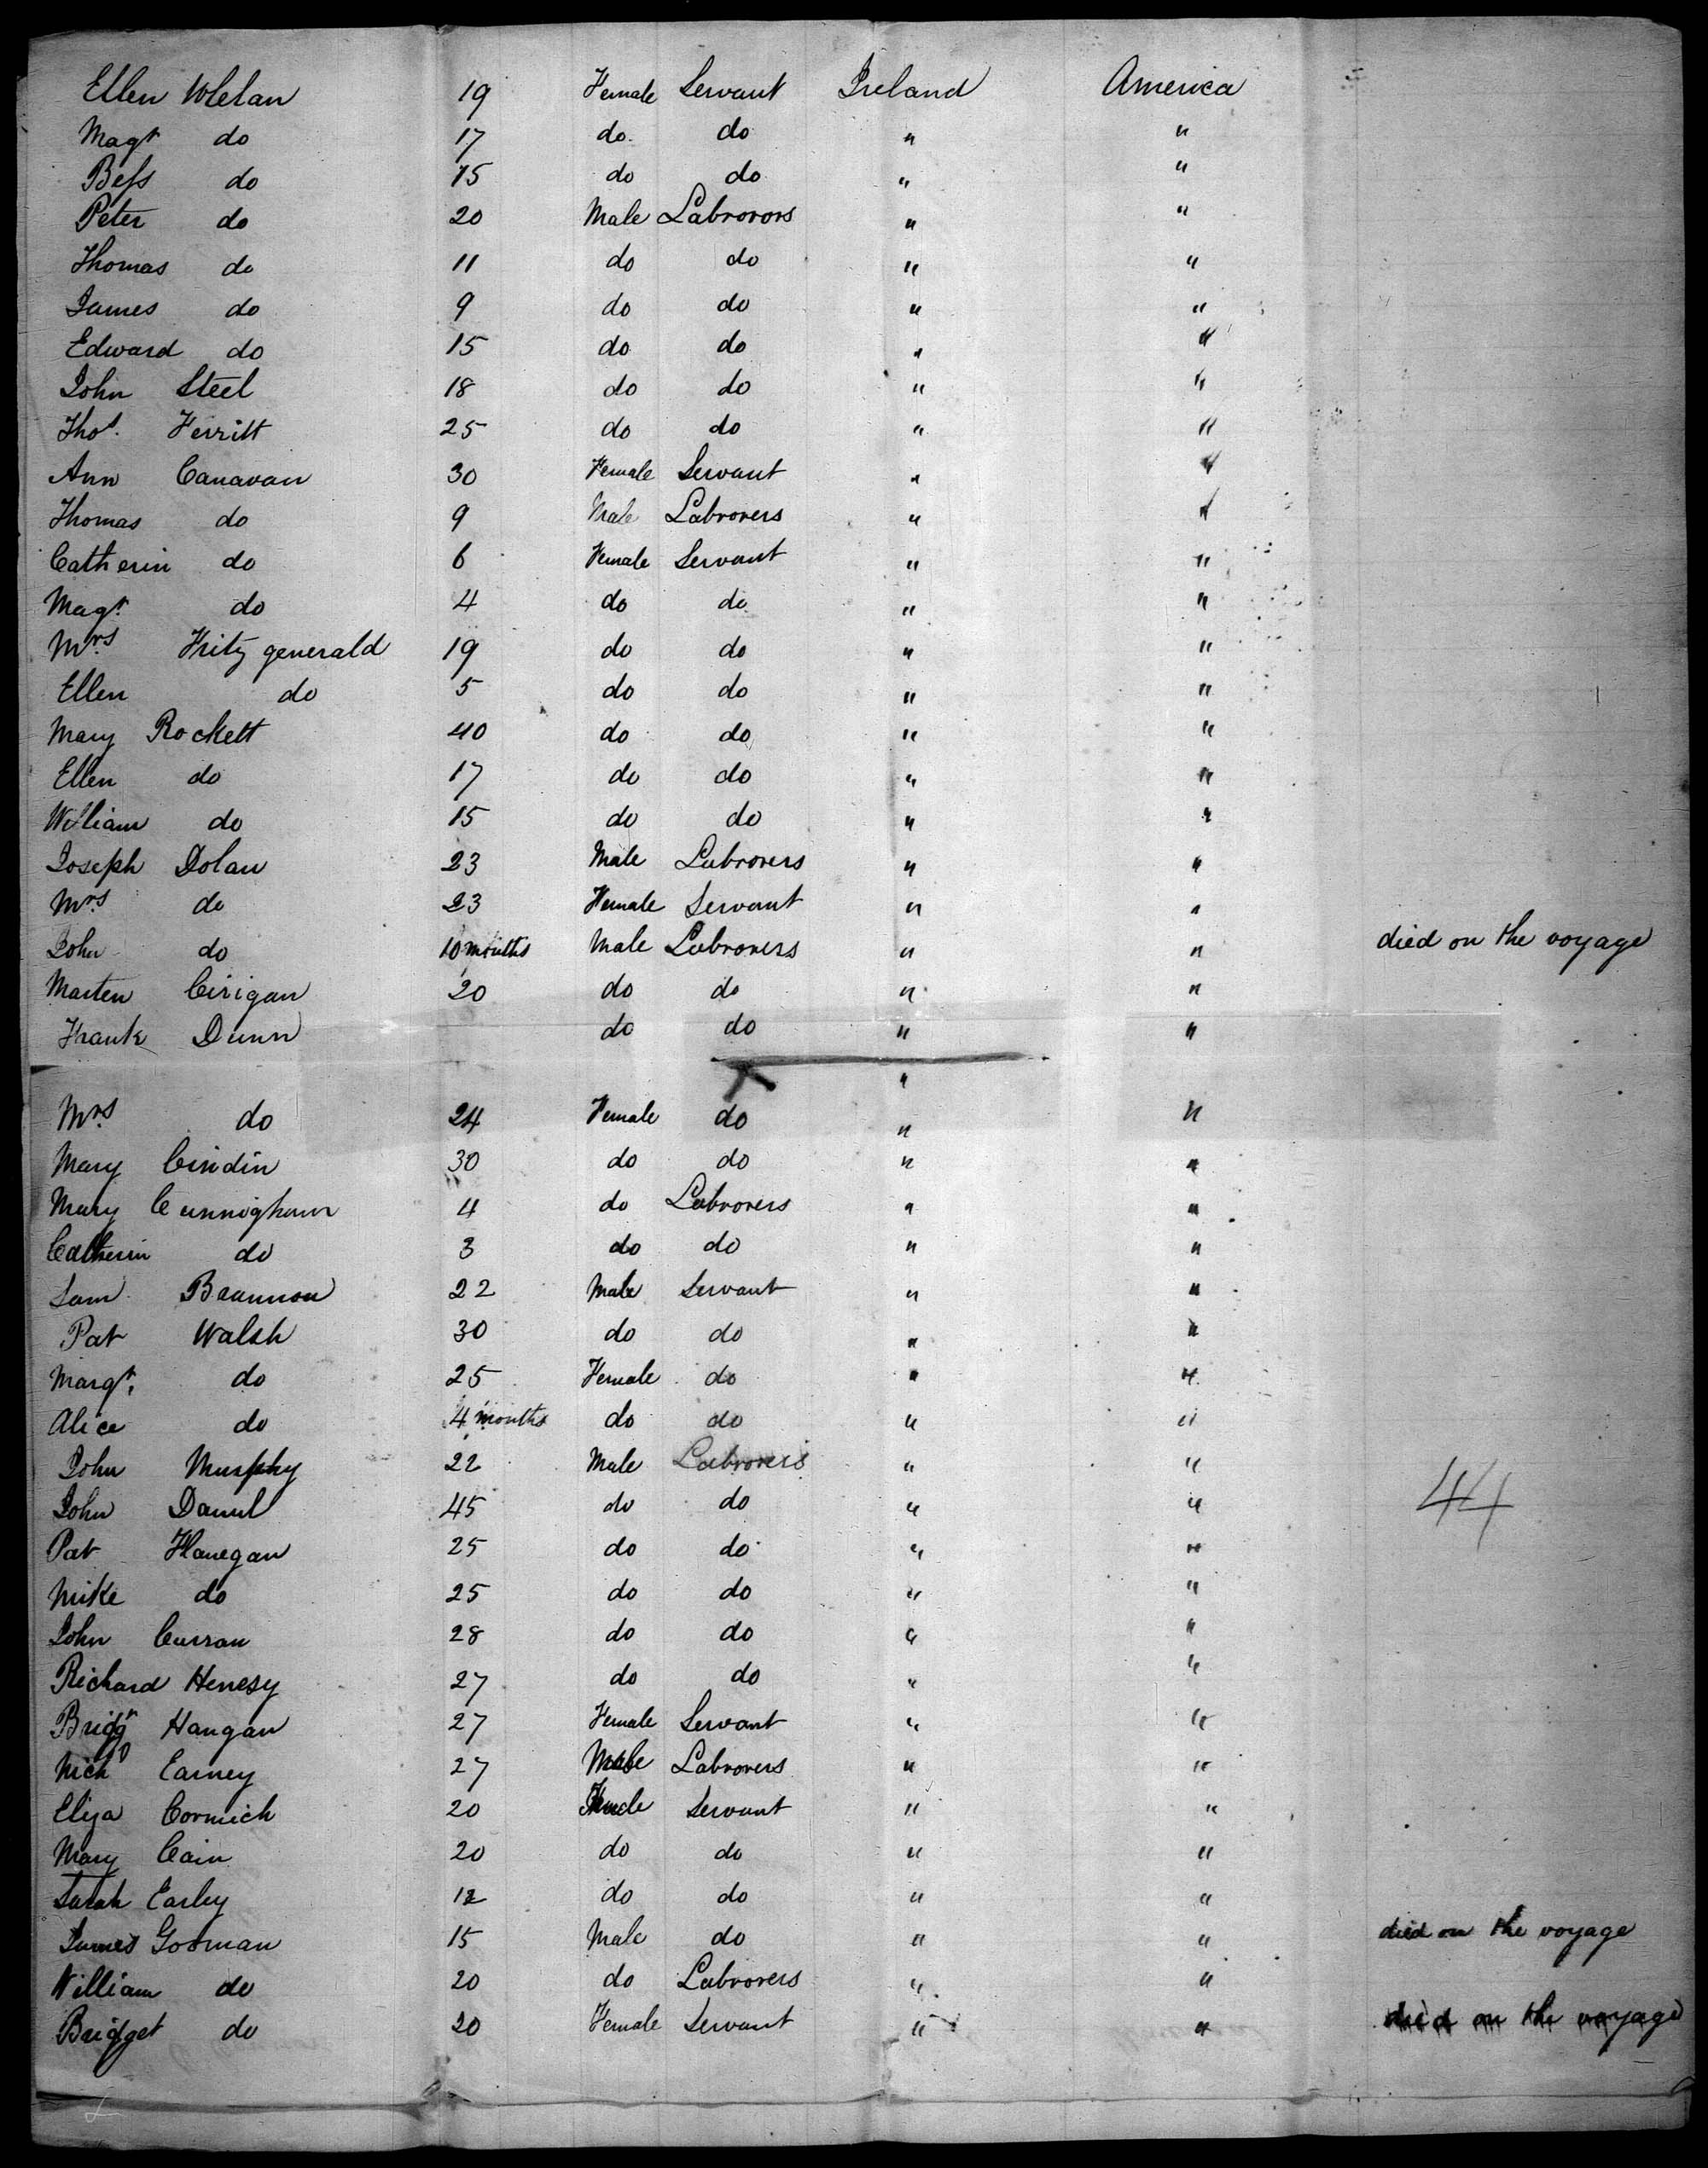 Ellen Whelan 19 Female Servant Ireland America
Magt do 17 do. do " "
Bess do 15 do do " "
Peter do 20 Male Labrorors " "
Thomas do 11 do do " "
James do 9 do do " "
Edward do 15 do do " "
John Steel 18 do do " "
Thos. Ferritt 25 do do " "
Ann Canavan 30 Female Servant " "
Thomas do 9 Male Labrorers " "
Catherin do 6 Female Servant " "
Magt. do 4 do do " "
Mrs. Fritz generald 19 do do " "
Ellen do 5 do do " "
Mary Rockett 40 do do " "
Ellen do 17 do do " "
William do 15 do do " "
Joseph Dolan 23 Male Labrorers " "
Mrs. do 23 Female Servant " "
John do 10 months Male Labrorers " " died on the voyage
Marten Cirigan 20 do do " "
Frank Dunn do do " "
"
Mrs. do 24 Female do " "
Mary Cindin 30 do do " "
Mary Cunnigham 4 do Labrorers " "
Catherin do 3 do do " "
Sam Braunnon 22 Male Servant " "
Pat Walsh 30 do do " "
Margt. do 25 Female do " "
Alice do 4 months do do " "
John Murphy 22 Male Labrorers " "
44
John Daniel 45 do do " "
Pat Flanegan 25 do do " "
Mike do 25 do do " "
John Curran 28 do do " "
Richard Henesy 27 do do " "
Bridgt Hangan 27 Female Servant " "
Nicho Earney 27 Male Labrorers " "
Eliza Cormich 20 Female Servant " "
Mary Cain 20 do do " "
Sarah Earley 12 do do " "
James Gorman 15 Male do " " died on the voyage
William do 20 do Labrorers " "
Bridget do 20 Female Servant " " died on the voyage